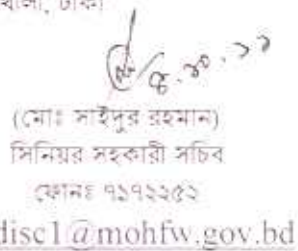 ঢাকা
৪.১০.১১
(মোঃ সাইদুর রহমান)
সিনিয়র সহকারী সচিব
ফোনঃ ৭১৭২২৫২
disc1@mohfw.gov.bd